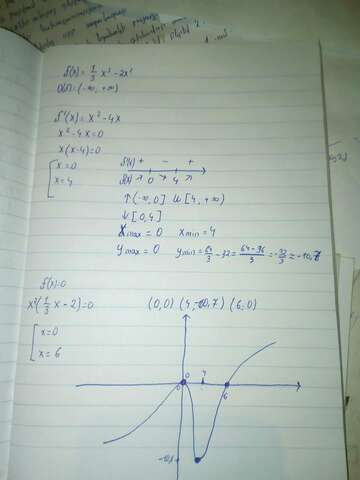 f(x) = 1/3 x³ - 2x²
D(f) = (-∞, +∞)
f'(x) = x² - 4x
x² - 4x = 0
x(x-4) = 0
[ x = 0
x = 4
f'(x) + - +
f(x) ↗ 0 ↘ 4 ↗
↑ (-∞, 0] U [4, +∞)
↓ [0, 4]
x max = 0 x min = 4
y max = 0 y min = 64/3 - 32 = (64-96)/3 = -32/3 ≈ -10,7
f(x)=0
x²(1/3 x - 2) = 0
[ x = 0
x = 6
(0,0) (4,-10,7) (6;0)
0
0
4
6